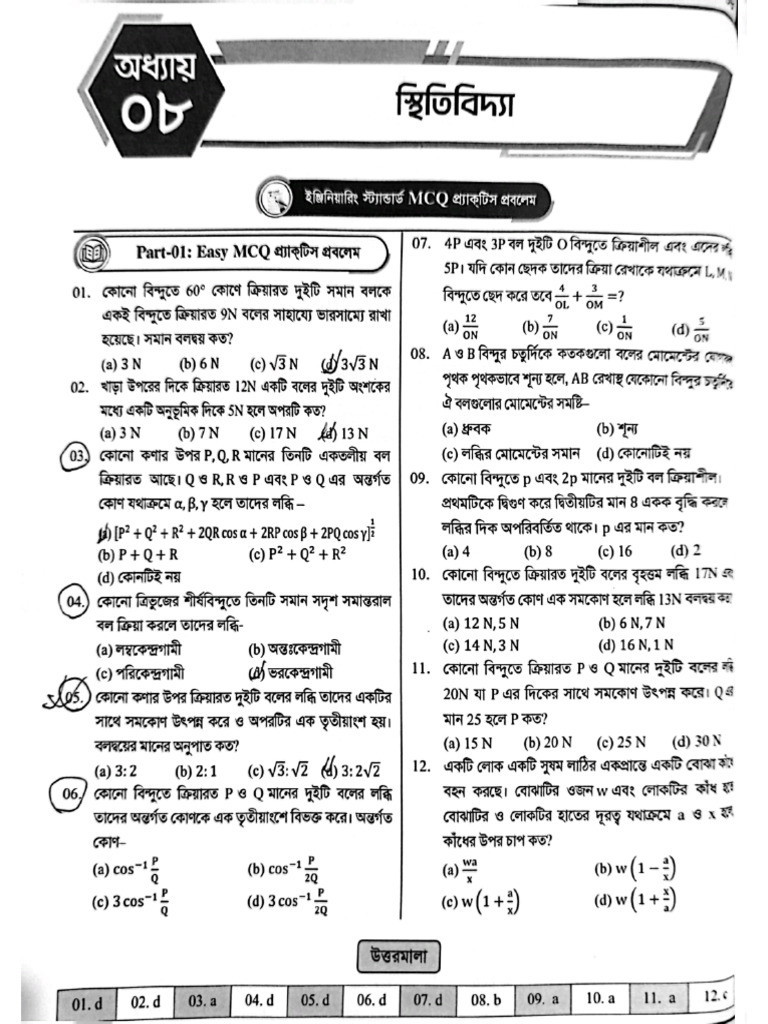 অধ্যায়
০৮
স্থিতিবিদ্যা
ইঞ্জিনিয়ারিং স্ট্যান্ডার্ড MCQ প্র্যাক্টিস প্রবলেম
Part-01: Easy MCQ প্র্যাক্টিস প্রবলেম
01. কোনো বিন্দুতে 60° কোণে ক্রিয়ারত দুইটি সমান বলকে
একই বিন্দুতে ক্রিয়ারত 9N বলের সাহায্যে ভারসাম্যে রাখা
হয়েছে। সমান বলদ্বয় কত?
(a) 3 N (b) 6 N (c) √3 N (d) 3√3 N
02. খাড়া উপরের দিকে ক্রিয়ারত 12N একটি বলের দুইটি অংশকের
মধ্যে একটি অনুভূমিক দিকে 5N হলে অপরটি কত?
(a) 3 N (b) 7 N (c) 17 N (d) 13 N
03. কোনো কণার উপর P, Q, R মানের তিনটি একতলীয় বল
ক্রিয়ারত আছে। Q ও R, R ও P এবং P ও Q এর অন্তর্গত
কোণ যথাক্রমে α, β, γ হলে তাদের লব্ধি –
(a) [P² + Q² + R² + 2QR cos α + 2RP cos β + 2PQ cos γ]^(1/2)
(b) P + Q + R (c) P² + Q² + R²
(d) কোনটিই নয়
04. কোনো ত্রিভুজের শীর্ষবিন্দুতে তিনটি সমান সদৃশ সমান্তরাল
বল ক্রিয়া করলে তাদের লব্ধি-
(a) লম্বকেন্দ্রগামী (b) অন্তঃকেন্দ্রগামী
(c) পরিকেন্দ্রগামী (d) ভরকেন্দ্রগামী
05. কোনো কণার উপর ক্রিয়ারত দুইটি বলের লব্ধি তাদের একটির
সাথে সমকোণ উৎপন্ন করে ও অপরটির এক তৃতীয়াংশ হয়।
বলদ্বয়ের মানের অনুপাত কত?
(a) 3: 2 (b) 2: 1 (c) √3: √2 (d) 3: 2√2
06. কোনো বিন্দুতে ক্রিয়ারত P ও Q মানের দুইটি বলের লব্ধি
তাদের অন্তর্গত কোণকে এক তৃতীয়াংশে বিভক্ত করে। অন্তর্গত
কোণ-
(a) cos⁻¹ P/Q (b) cos⁻¹ P/2Q
(c) 3 cos⁻¹ P/Q (d) 3 cos⁻¹ P/2Q
07. 4P এবং 3P বল দুইটি O বিন্দুতে ক্রিয়াশীল এবং এদের
5P। যদি কোন ছেদক তাদের ক্রিয়া রেখাকে যথাক্রমে L, M,
বিন্দুতে ছেদ করে তবে 4/OL + 3/OM =?
(a) 12/ON (b) 7/ON (c) 1/ON (d) 5/ON
08. A ও B বিন্দুর চতুর্দিকে কতকগুলো বলের মোমেন্টের
পৃথক পৃথকভাবে শূন্য হলে, AB রেখাস্থ যেকোনো বিন্দুর চতুর্দিকে
ঐ বলগুলোর মোমেন্টের সমষ্টি–
(a) ধ্রুবক (b) শূন্য
(c) লব্ধির মোমেন্টের সমান (d) কোনোটিই নয়
09. কোনো বিন্দুতে p এবং 2p মানের দুইটি বল ক্রিয়াশীল।
প্রথমটিকে দ্বিগুণ করে দ্বিতীয়টির মান 8 একক বৃদ্ধি করলে
লব্ধির দিক অপরিবর্তিত থাকে। p এর মান কত?
(a) 4 (b) 8 (c) 16 (d) 2
10. কোনো বিন্দুতে ক্রিয়ারত দুইটি বলের বৃহত্তম লব্ধি 17N
তাদের অন্তর্গত কোণ এক সমকোণ হলে লব্ধি 13N বলদ্বয়
(a) 12 N, 5 N (b) 6 N, 7 N
(c) 14 N, 3 N (d) 16 N, 1 N
11. কোনো বিন্দুতে ক্রিয়ারত P ও Q মানের দুইটি বলের
20N যা P এর দিকের সাথে সমকোণ উৎপন্ন করে। Q
মান 25 হলে P কত?
(a) 15 N (b) 20 N (c) 25 N (d) 30 N
12. একটি লোক একটি সুষম লাঠির একপ্রান্তে একটি বোঝা
বহন করছে। বোঝাটির ওজন w এবং লোকটির কাঁধ
বোঝাটির ও লোকটির হাতের দূরত্ব যথাক্রমে a ও x
কাঁধের উপর চাপ কত?
(a) wa/x (b) w(1 − a/x)
(c) w(1 + a/x) (d) w(1 + x/a)
উত্তরমালা
01. d 02. d 03. a 04. d 05. d 06. d 07. d 08. b 09. a 10. a 11. a 12. c